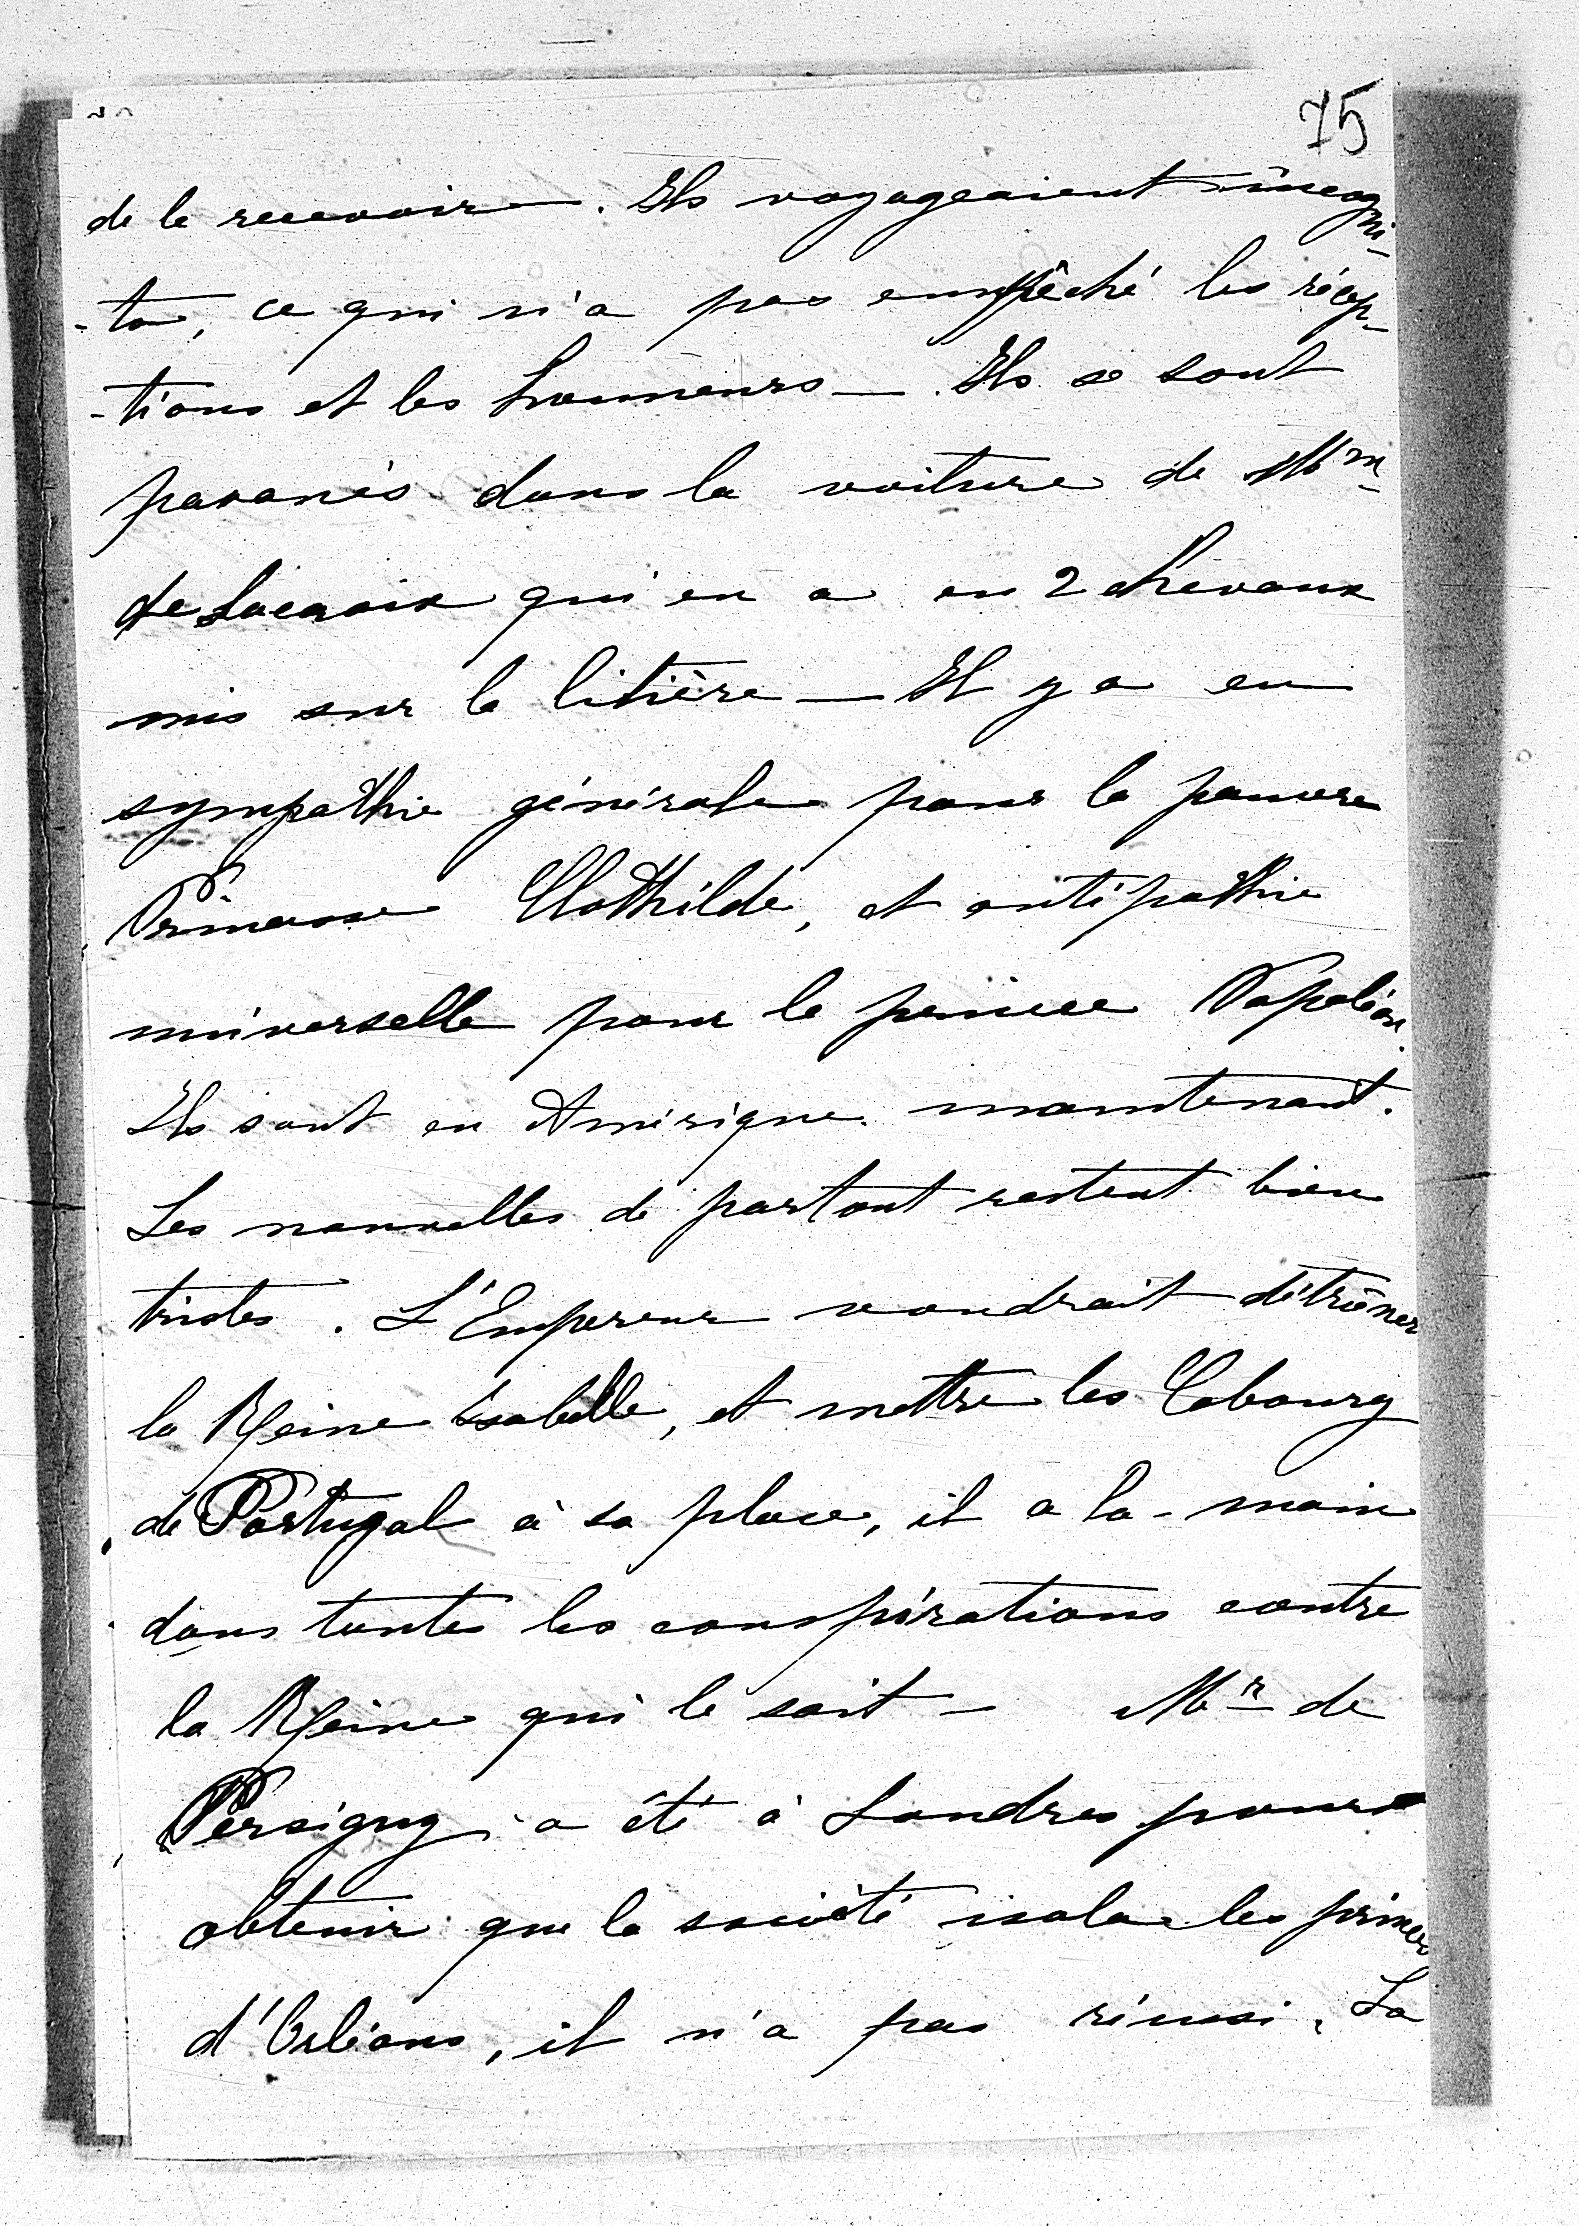 75
de le recevoir. Ils voyageaient incogni-
-to, ce qui n'a pas empêché les récep-
-tions et les honneurs —. Ils se sont
pavanés dans la voiture de Mme
de Lacroix qui en a eu 2 chevaux
mis sur la litière — Il y a eu
sympathie générale pour la pauvre
Princesse Clothilde, et antipathie
universelle pour le prince Napoléon.
Ils sont en Amérique maintenant.
Les nouvelles de partout restent bien
tristes. L'Empereur voudrait détrôner
la Reine Isabelle, et mettre les Cobourg
de Portugal à sa place, il a la main
dans toutes les conspirations contre
la Reine qui le sait — Mr de
Persigny a été à Londres pour
obtenir que la société isola les princes
d'Orléans, il n'a pas réussi. La